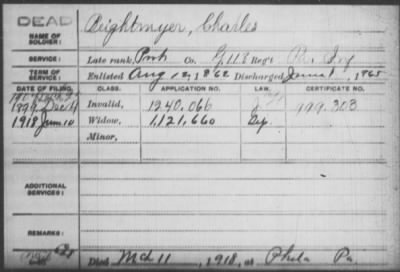 DEAD
NAME OF SOLDIER: Beightmyer, Charles
SERVICE: Late rank, Prvt Co. G, 118 Reg't Pa. Inf
TERM OF SERVICE: Enlisted Aug 12, 1862 Discharged June 1, 1865
DATE OF FILING. CLASS. APPLICATION NO. LAW. CERTIFICATE NO.
1899 Dec 4 Invalid, 1240.066 999.303
1918 June 10 Widow, 1,121,660
Minor,
ADDITIONAL SERVICES:
REMARKS:
Died Mch 11, 1918, at Phila Pa